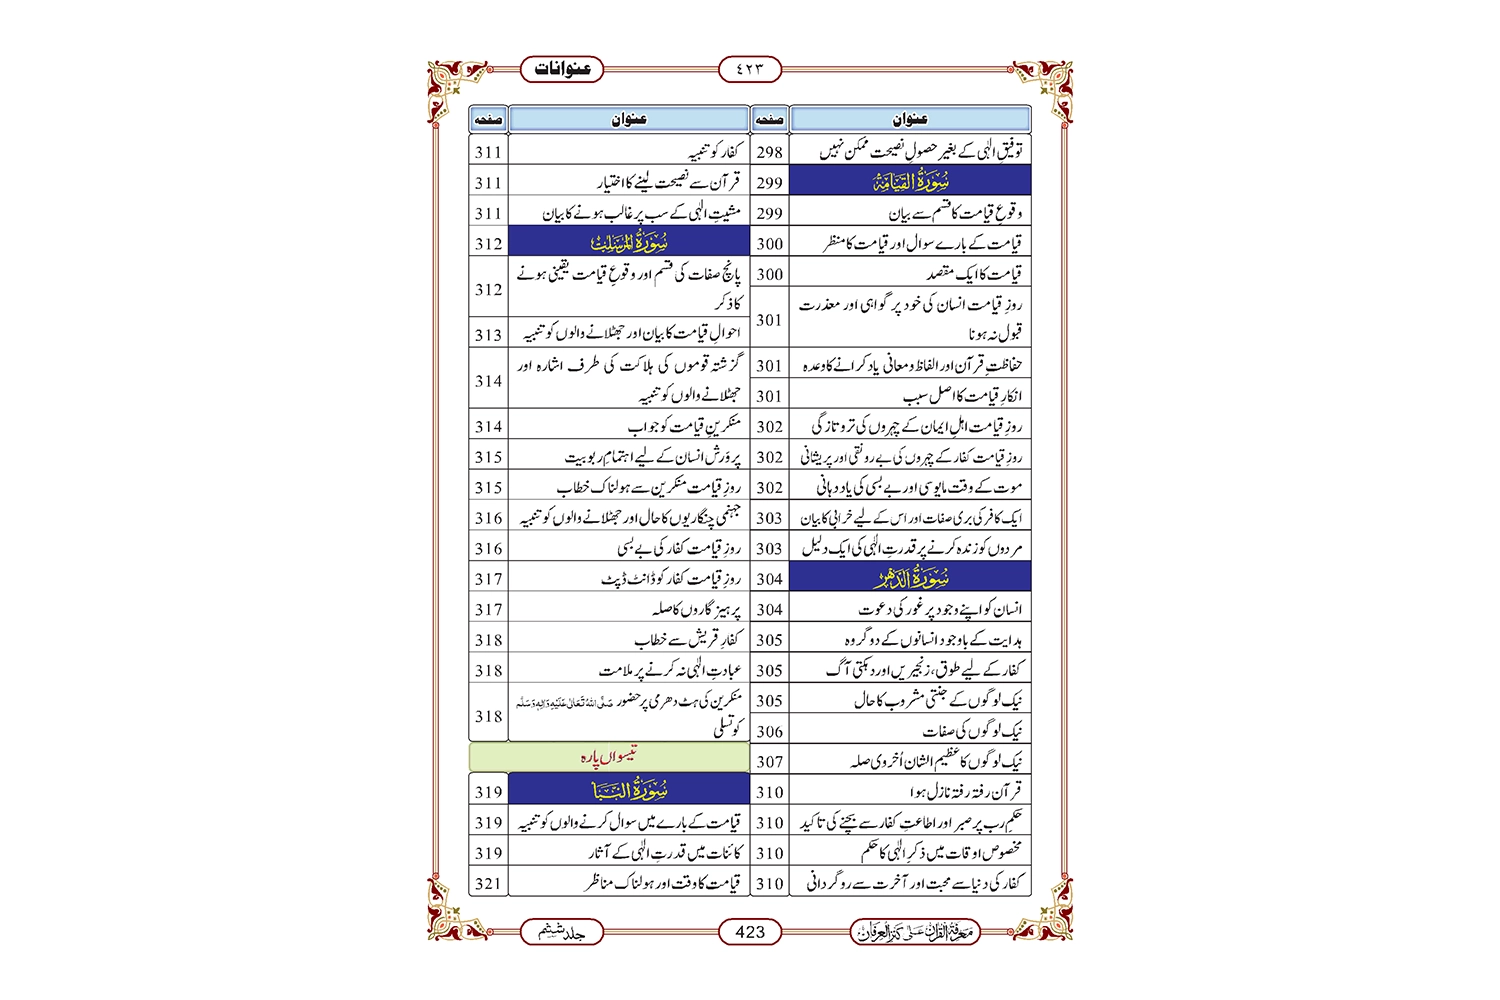 عنوانات
٤٢٣
عنوان صفحہ
توفیقِ الٰہی کے بغیر حصولِ نصیحت ممکن نہیں 298
سُوْرَةُ الْقِيَامَة 299
وقوعِ قیامت کا قسم سے بیان 299
قیامت کے بارے سوال اور قیامت کا منظر 300
قیامت کا ایک مقصد 300
روزِ قیامت انسان کی خود پر گواہی اور معذرت
قبول نہ ہونا 301
حفاظتِ قرآن اور الفاظ و معانی یاد کرانے کا وعدہ 301
انکارِ قیامت کا اصل سبب 301
روزِ قیامت اہلِ ایمان کے چہروں کی تروتازگی 302
روزِ قیامت کفار کے چہروں کی بے رونقی اور پریشانی 302
موت کے وقت مایوسی اور بے بسی کی یاد دہانی 302
ایک کافر کی بری صفات اور اس کے لیے خرابی کا بیان 303
مردوں کو زندہ کرنے پر قدرتِ الٰہی کی ایک دلیل 303
سُوْرَةُ الدَّهْر 304
انسان کو اپنے وجود پر غور کی دعوت 304
ہدایت کے باوجود انسانوں کے دو گروہ 305
کفار کے لیے طوق، زنجیریں اور دہکتی آگ 305
نیک لوگوں کے جنتی مشروب کا حال 305
نیک لوگوں کی صفات 306
نیک لوگوں کا عظیم الشان اُخروی صلہ 307
قرآن رفتہ رفتہ نازل ہوا 310
حکمِ رب پر صبر اور اطاعتِ کفار سے بچنے کی تاکید 310
مخصوص اوقات میں ذکرِ الٰہی کا حکم 310
کفار کی دنیا سے محبت اور آخرت سے روگردانی 310
عنوان صفحہ
کفار کو تنبیہ 311
قرآن سے نصیحت لینے کا اختیار 311
مشیتِ الٰہی کے سب پر غالب ہونے کا بیان 311
سُوْرَةُ الْمُرْسَلٰت 312
پانچ صفات کی قسم اور وقوعِ قیامت یقینی ہونے
کا ذکر 312
احوالِ قیامت کا بیان اور جھٹلانے والوں کو تنبیہ 313
گزشتہ قوموں کی ہلاکت کی طرف اشارہ اور
جھٹلانے والوں کو تنبیہ 314
منکرینِ قیامت کو جواب 314
پروَرش انسان کے لیے اہتمامِ ربوبیت 315
روزِ قیامت منکرین سے ہولناک خطاب 315
جہنمی چنگاریوں کا حال اور جھٹلانے والوں کو تنبیہ 316
روزِ قیامت کفار کی بے بسی 316
روزِ قیامت کفار کو ڈانٹ ڈپٹ 317
پرہیز گاروں کا صلہ 317
کفارِ قریش سے خطاب 318
عبادتِ الٰہی نہ کرنے پر ملامت 318
منکرین کی ہٹ دھرمی پر حضور صَلَّی اللهُ تَعَالٰی عَلَيْهِ وَاٰلِهٖ وَسَلَّم
کو تسلی 318
تیسواں پارہ
سُوْرَةُ النَّبَا 319
قیامت کے بارے میں سوال کرنے والوں کو تنبیہ 319
کائنات میں قدرتِ الٰہی کے آثار 319
قیامت کا وقت اور ہولناک مناظر 321
معرفة القرآن على كنز العرفان
423
جلد ششم